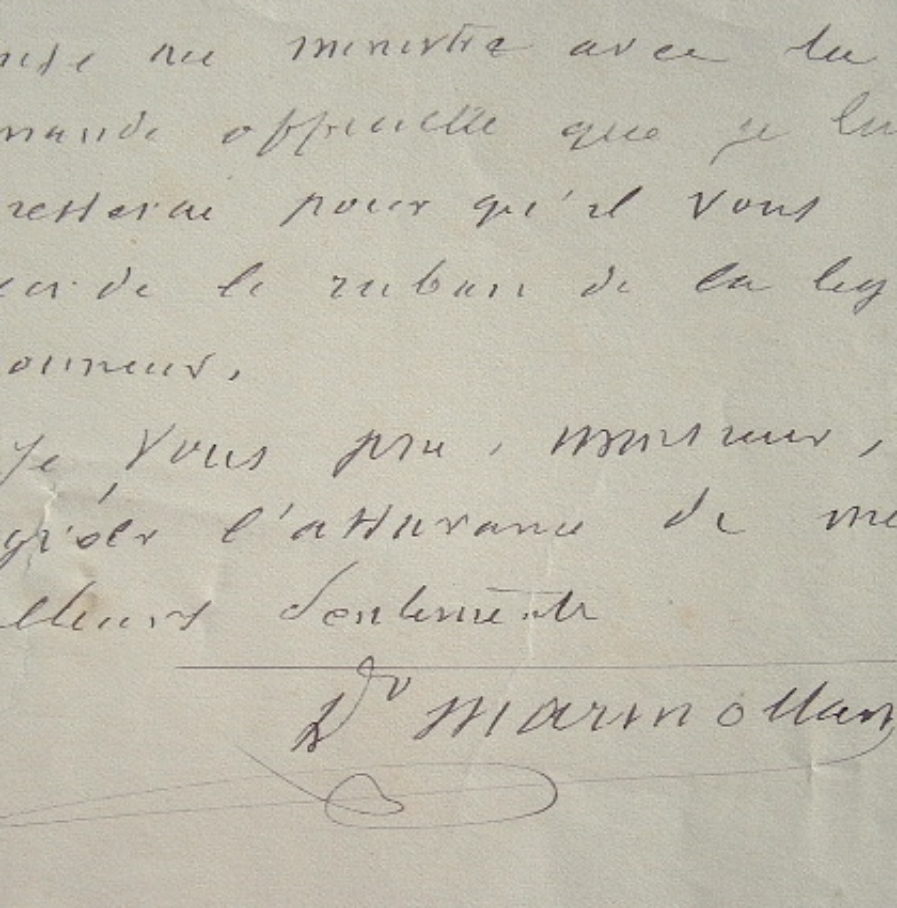 au ministre avec la
mande officielle que je lui
resserai pour qu'il vous
corde le ruban de la leg
onneur.
Je vous prie, monsieur,
gréer l'assurance de me
lleurs sentiments
Dr Marmottan